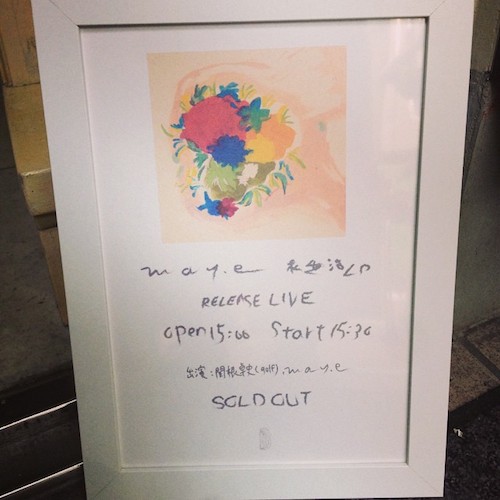 m a y . e LP
RELEASE LIVE
open 15:00 Start 15:30
出演:関根 史(golf), m a y . e
SOLD OUT